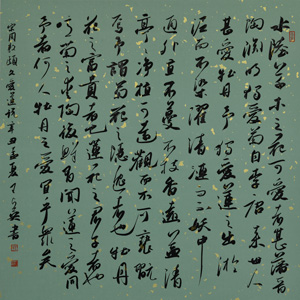 水陸草木之花可愛者甚蕃晉
陶淵明獨愛菊自李唐來世人
甚愛牡丹予獨愛蓮之出淤
泥而不染濯清漣而不妖中
通外直不蔓不枝香遠益清
亭亭淨植可遠觀而不可褻翫
焉予謂菊花之隱逸者也牡丹
花之富貴者也蓮花之君子者也
噫菊之愛陶後鮮有聞蓮之愛同
予者何人牡丹之愛宜乎眾矣
宋周敦頤文愛蓮說辛丑